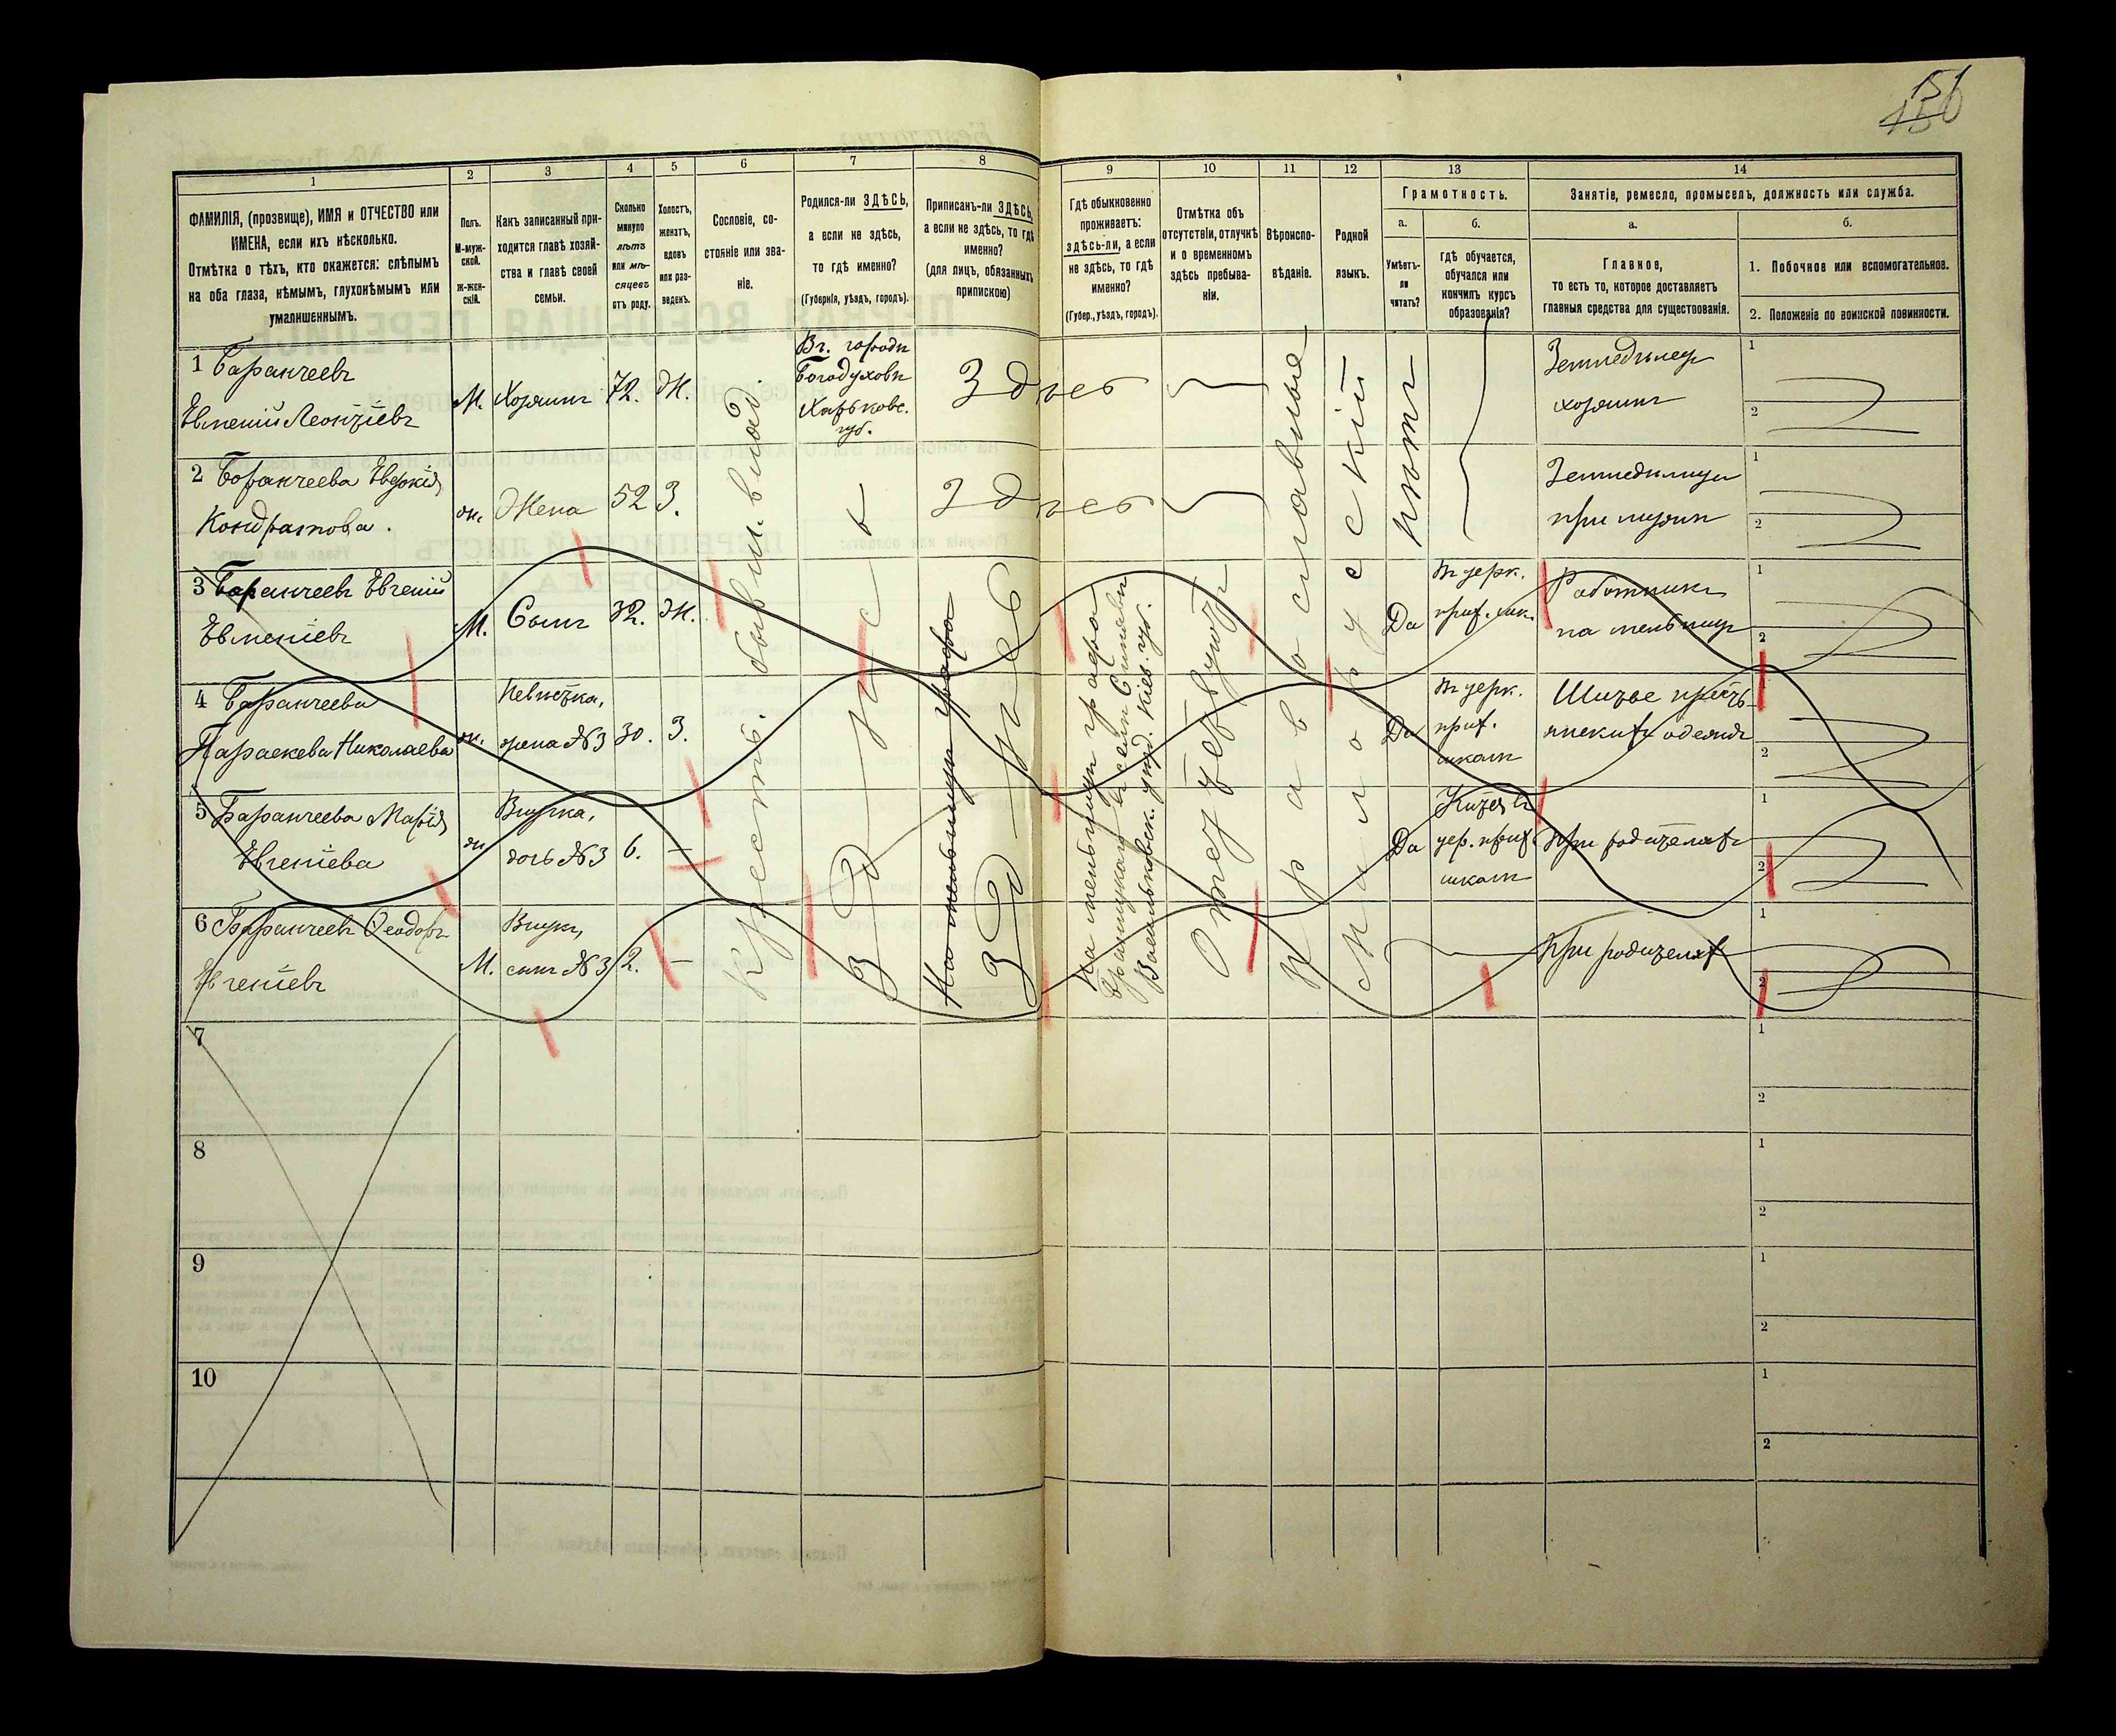 151
150
1
2
3
4
5
6
7
8
9
10
11
12
13
14
ФАМИЛІЯ, (прозвище), ИМЯ и ОТЧЕСТВО или
ИМЕНА, если ихъ нѣсколько.
Отмѣтка о тѣхъ, кто окажется: слѣпымъ
на оба глаза, нѣмымъ, глухонѣмымъ или
умалишеннымъ.
Полъ.
М-муж-
ской.
Ж-жен-
скій.
Какъ записанный при-
ходится главѣ хозяй-
ства и главѣ своей
семьи.
Сколько
минуло
лѣтъ
или мѣ-
сяцевъ
отъ роду.
Холостъ,
женатъ,
вдовъ
или раз-
веденъ.
Сословіе, со-
стояніе или зва-
ніе.
Родился-ли ЗДѢСЬ,
а если не здѣсь,
то гдѣ именно?
(Губернія, уѣздъ, городъ).
Приписанъ-ли ЗДѢСЬ,
а если не здѣсь, то гдѣ
именно?
(для лицъ, обязанныхъ
припискою)
Гдѣ обыкновенно
проживаетъ:
здѣсь-ли, а если
не здѣсь, то гдѣ
именно?
(Губер., уѣздъ, городъ).
Отмѣтка объ
отсутствіи, отлучкѣ
и о временномъ
здѣсь пребыва-
ніи.
Вѣроиспо-
вѣданіе.
Родной
языкъ.
Грамотность.
а.
Умѣетъ-
ли
читать?
б.
гдѣ обучается,
обучался или
кончилъ курсъ
образованія?
Занятіе, ремесло, промыселъ, должность или служба.
а.
Главное,
то есть то, которое доставляетъ
главныя средства для существованія.
б.
1. Побочное или вспомогательное.
2. Положеніе по воинской повинности.
1 Баранчеевъ
Евменій Леонтіевъ
М.
Хозяинъ
72.
Ж.
Въ городѣ
Богодуховѣ
Харьковс.
губ.
Здѣсь
Земледѣлецъ
хозяинъ
1
2
2 Баранчеева Евдокія
Кондратова.
ж.
Жена
52
З.
Здѣсь
Земледѣлица
при мужѣ
1
2
3 Баранчеевъ Евгеній
Евменіевъ
М.
Сынъ
32.
Ж.
Да
въ церк.
прих. шк.
Работникъ
на мельницѣ
1
2
4 Баранчеева
Параскева Николаева
ж.
Невѣстка,
жена №3
30.
З.
Да
въ церк.
прих.
школѣ
Шитье крестьянскихъ одеждъ
1
2
5 Баранчеева Марія
Евгеніева
ж.
Внучка,
дочь №3
6.
—
Да
цер. прих.
школѣ
При родителяхъ
1
2
6 Баранчеевъ Ѳеодоръ
Евгеніевъ
М.
Внукъ,
сынъ №3
2.
—
При родителяхъ
1
2
Крестъ. бывш. владѣ.
Здѣсь
На мельницѣ графа
Здѣсь
На мельницѣ графа
Браницкаго въ селѣ
Васильковск. уѣзд. Кіев. губ.
Православные
Малорусскій
нѣтъ
7
1
2
8
1
2
9
1
2
10
1
2